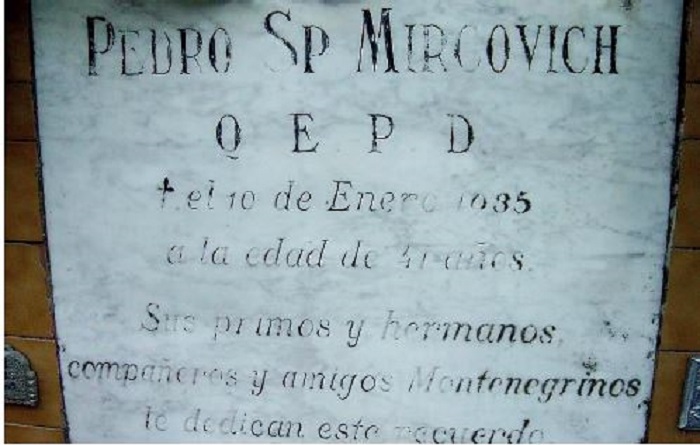 PEDRO SP MIRCOVICH
Q E P D
† el 10 de Enero 1935
a la edad de 41 años.
Sus primos y hermanos,
compañeros y amigos Montenegrinos
le dedican este recuerdo